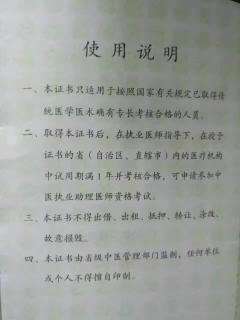 使用说明
一、本证书只适用于按照国家有关规定已取得传
统医学医术确有专长考核合格的人员。
二、取得本证书后，在执业医师指导下，在授予
证书的省（自治区、直辖市）内的医疗机构
中试用期满1年并考核合格，可申请参加中
医执业助理医师资格考试。
三、本证书不得出借、出租、抵押、转让、涂改、
故意损毁。
四、本证书由省级中医管理部门监制，任何单位
或个人不得擅自印制。